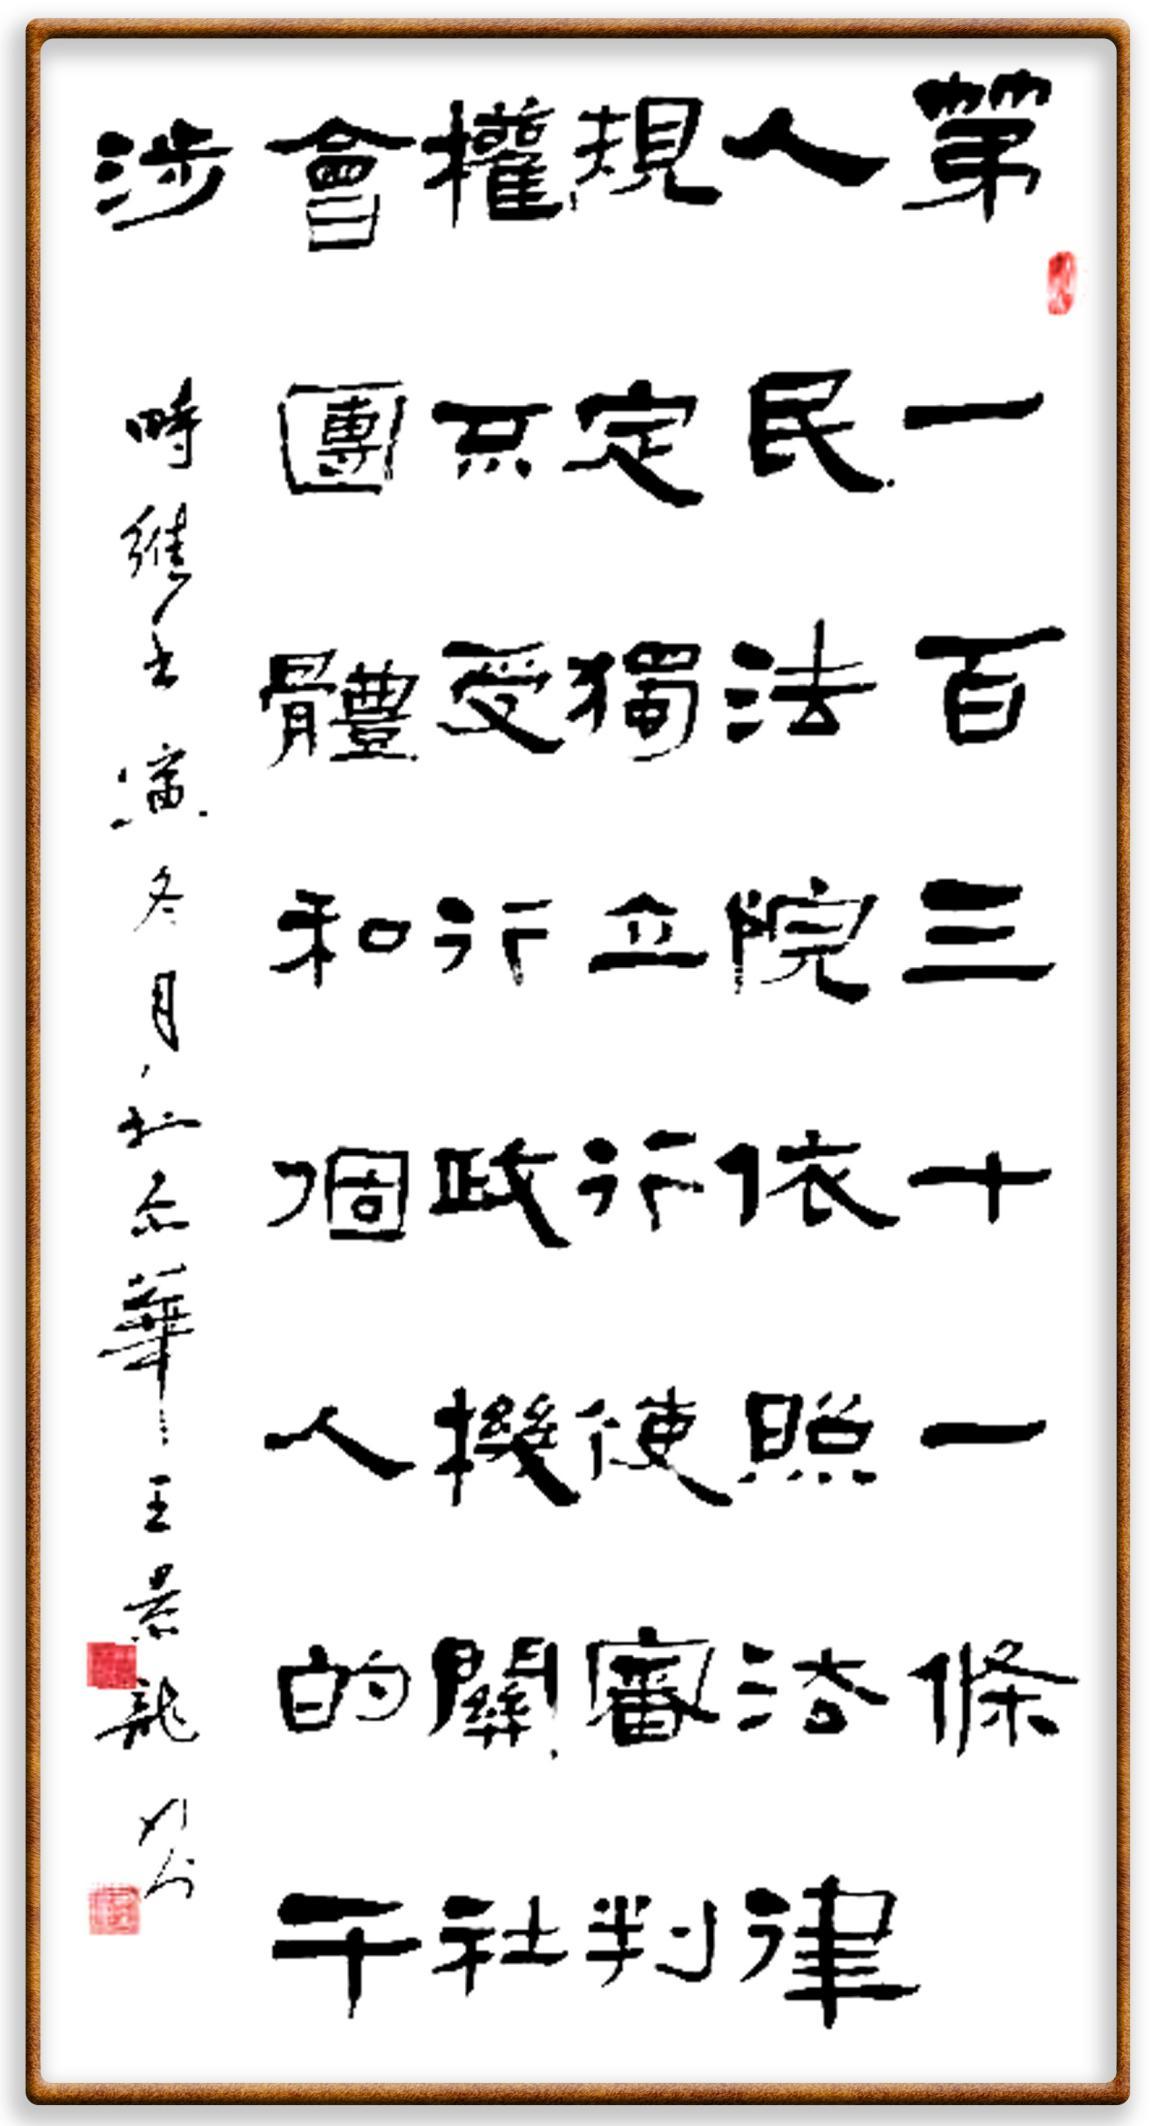 第一百三十一條
人民法院依照法律
規定獨立行使審判
權不受行政機關社
會團體和個人的干
涉
時維壬寅冬月於京華王景龍